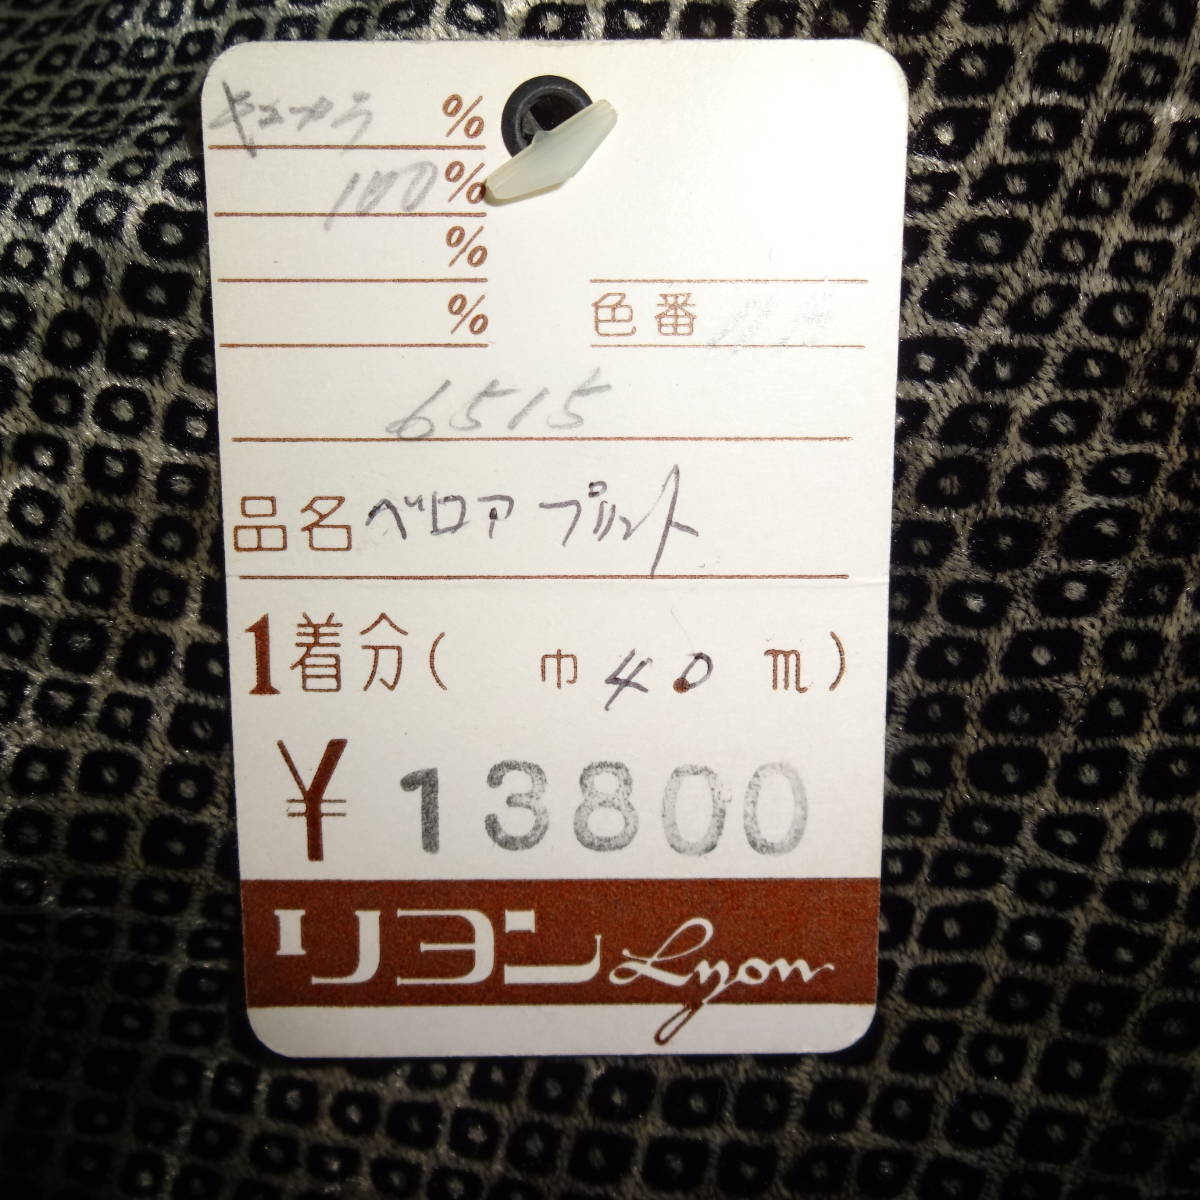 キュプラ %
100 %
%
%
色番
6515
品名 ベロア プリント
1着分( 巾 4.0 m)
¥ 13800
リヨン Lyon